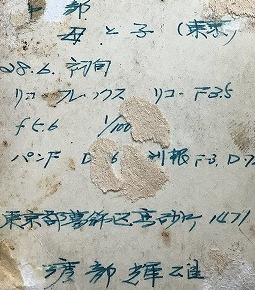 部
母と子 (東京)
28.6. 初旬
リコーフレックス リコー F3.5
f5.6 1/100
パンF D 6 利根 F3, D-7
東京都葛飾区高砂町, 1471
渡部輝雄